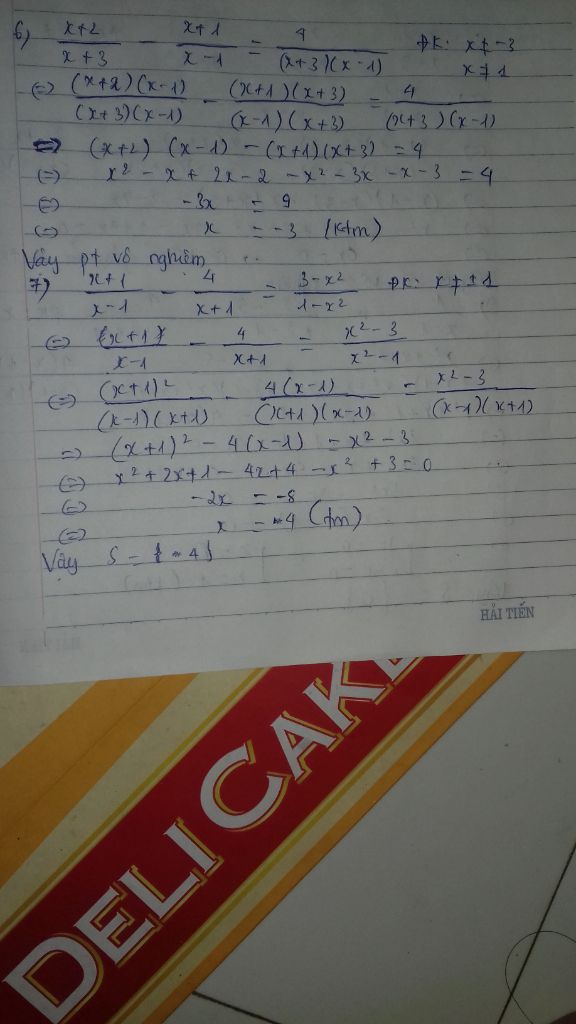 6) (x+2)/(x+3) - (x+1)/(x-1) = 4/((x+3)(x-1)) ĐK: x ≠ -3
x ≠ 1
(=) ((x+2)(x-1))/((x+3)(x-1)) - ((x+1)(x+3))/((x-1)(x+3)) = 4/((x+3)(x-1))
(=) (x+2)(x-1) - (x+1)(x+3) = 4
(=) x² - x + 2x - 2 - x² - 3x - x - 3 = 4
(=) -3x = 9
(=) x = -3 (ktm)
Vậy pt vô nghiệm
7) (x+1)/(x-1) - 4/(x+1) = (3-x²)/(1-x²) ĐK: x ≠ ±1
(=) (x+1)/(x-1) - 4/(x+1) = (x²-3)/(x²-1)
(=) (x+1)²/((x-1)(x+1)) - 4(x-1)/((x+1)(x-1)) = (x²-3)/((x-1)(x+1))
=) (x+1)² - 4(x-1) = x² - 3
(=) x² + 2x + 1 - 4x + 4 - x² + 3 = 0
(=) -2x = -8
(=) x = -4 (tm)
Vậy S = {-4}
HẢI TIẾN
DELI CAKE